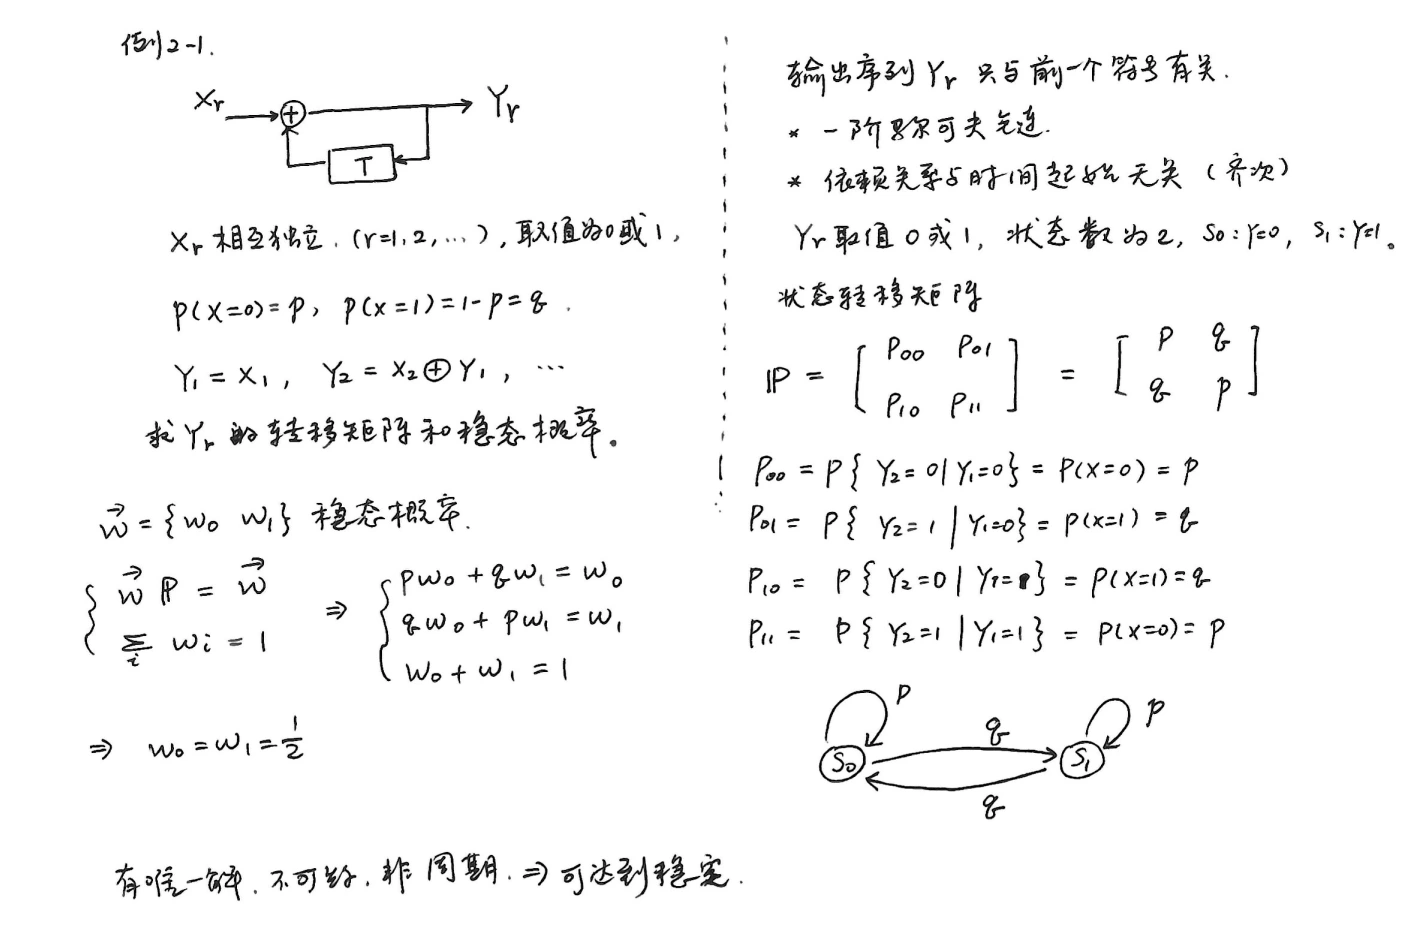 例2-1.
Xr ⊕ Yr
T
Xr 相互独立. (r=1,2,…), 取值为0或1,
P(X=0)=p, P(X=1)=1-p=q.
Y₁=X₁, Y₂=X₂⊕Y₁, …
求Yr的转移矩阵和稳态概率。
w⃗={w₀ w₁} 稳态概率.
{ w⃗ ℙ = w⃗ ⇒ { pw₀+qw₁=w₀
∑ᵢ wᵢ = 1 qw₀+pw₁=w₁
w₀+w₁=1
⇒ w₀=w₁=1/2
有唯一解. 不可约. 非周期. ⇒ 可达到稳定.
输出序列Yr 只与前一个符号有关.
* 一阶马尔可夫链.
* 依赖关系与时间起始无关 (齐次)
Yr取值0或1, 状态数为2, S₀:Y=0, S₁:Y=1。
状态转移矩阵
ℙ = [ P₀₀ P₀₁ ] = [ p q ]
[ P₁₀ P₁₁ ] [ q p ]
P₀₀ = P{Y₂=0|Y₁=0} = P(X=0) = p
P₀₁ = P{Y₂=1|Y₁=0} = P(X=1) = q
P₁₀ = P{Y₂=0|Y₁=1} = P(X=1)=q
P₁₁ = P{Y₂=1|Y₁=1} = P(X=0)=p
p q p
S₀ S₁
q